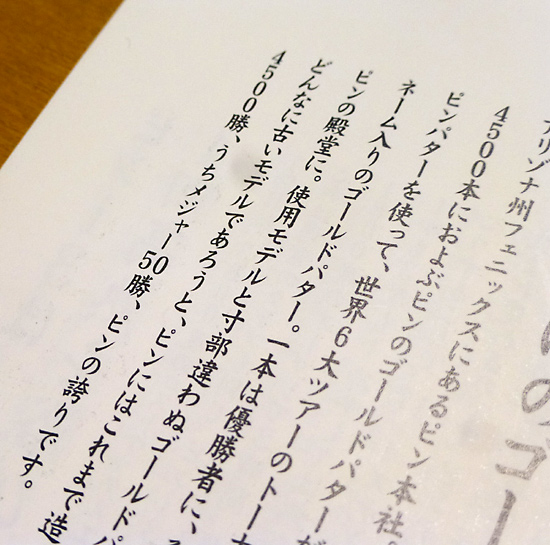 のゴー
アリゾナ州フェニックスにあるピン本社。
4500本におよぶピンのゴールドパターが
ピンパターを使って、世界6大ツアーのトーナ
ネーム入りのゴールドパター。一本は優勝者に、
ピンの殿堂に。使用モデルと寸部違わぬゴールドパ
どんなに古いモデルであろうと、ピンにはこれまで造
4500勝、うちメジャー50勝、ピンの誇りです。